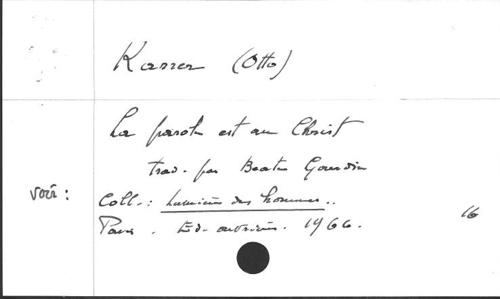 Karrer (Otto)
La parole est au Christ
trad. par Beate Gourdin
voir :
Coll. : Lumière des hommes..
Paris. Ed. ouvrières. 1966.
16